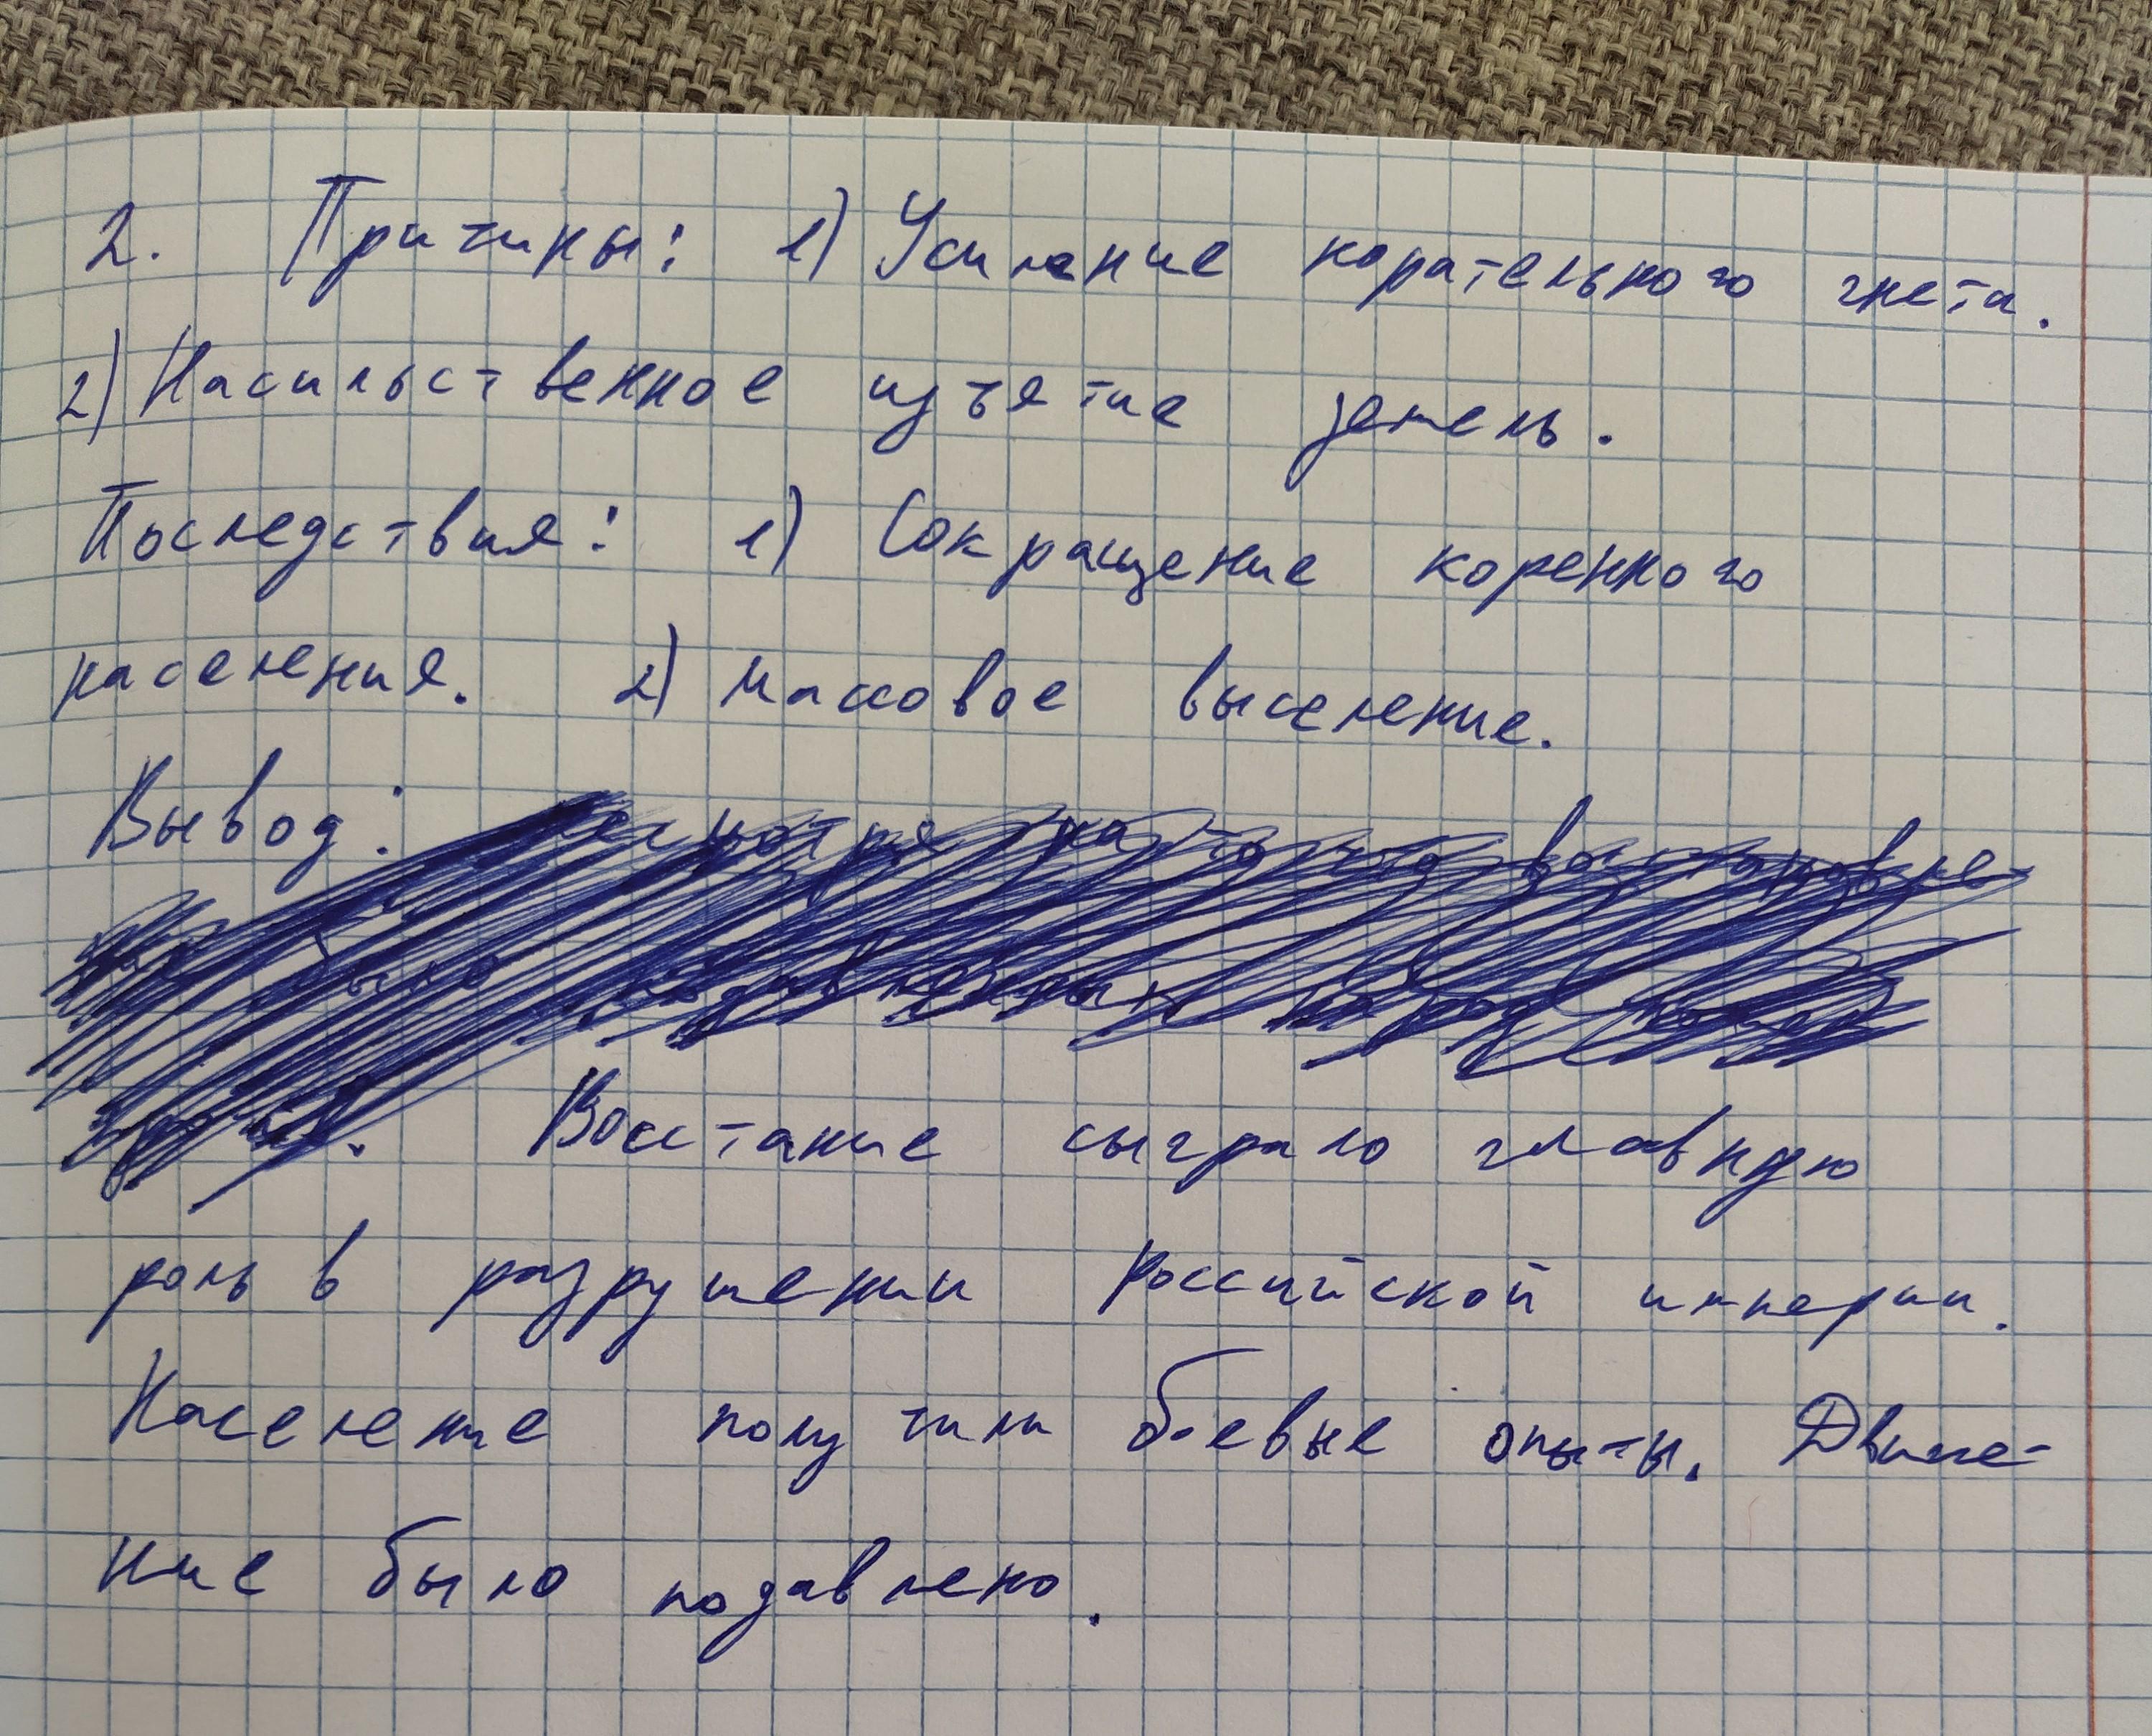 2. Причины: 1) Усиление корательного гнета.
2) Насильственное изъятие земель.
Последствия: 1) Сокращение коренного
населения. 2) Массовое выселение.
Вывод: несмотря на то что
было
Восстание сыграло главную
роль в разрушении Российской империи.
Население получили боевые опыты. Движе-
ние было подавлено.